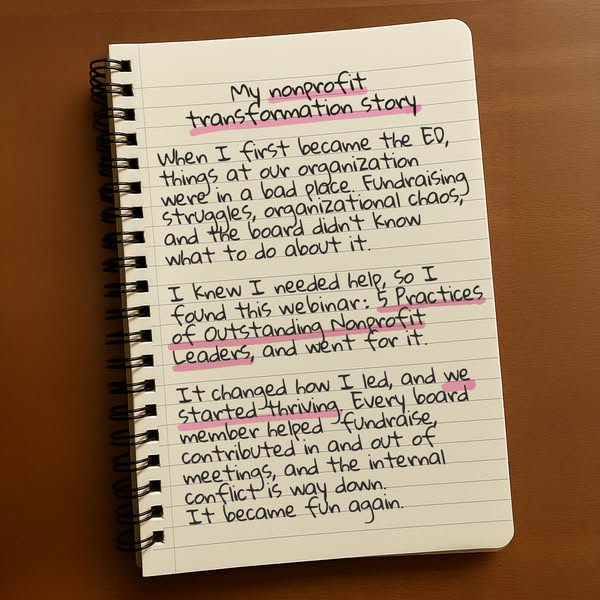 My nonprofit
transformation story
When I first became the ED,
things at our organization
were in a bad place. Fundraising
struggles, organizational chaos,
and the board didn't know
what to do about it.
I knew I needed help, so I
found this webinar: 5 Practices
of Outstanding Nonprofit
Leaders, and went for it.
It changed how I led, and we
started thriving. Every board
member helped fundraise,
contributed in and out of
meetings, and the internal
conflict is way down.
It became fun again.